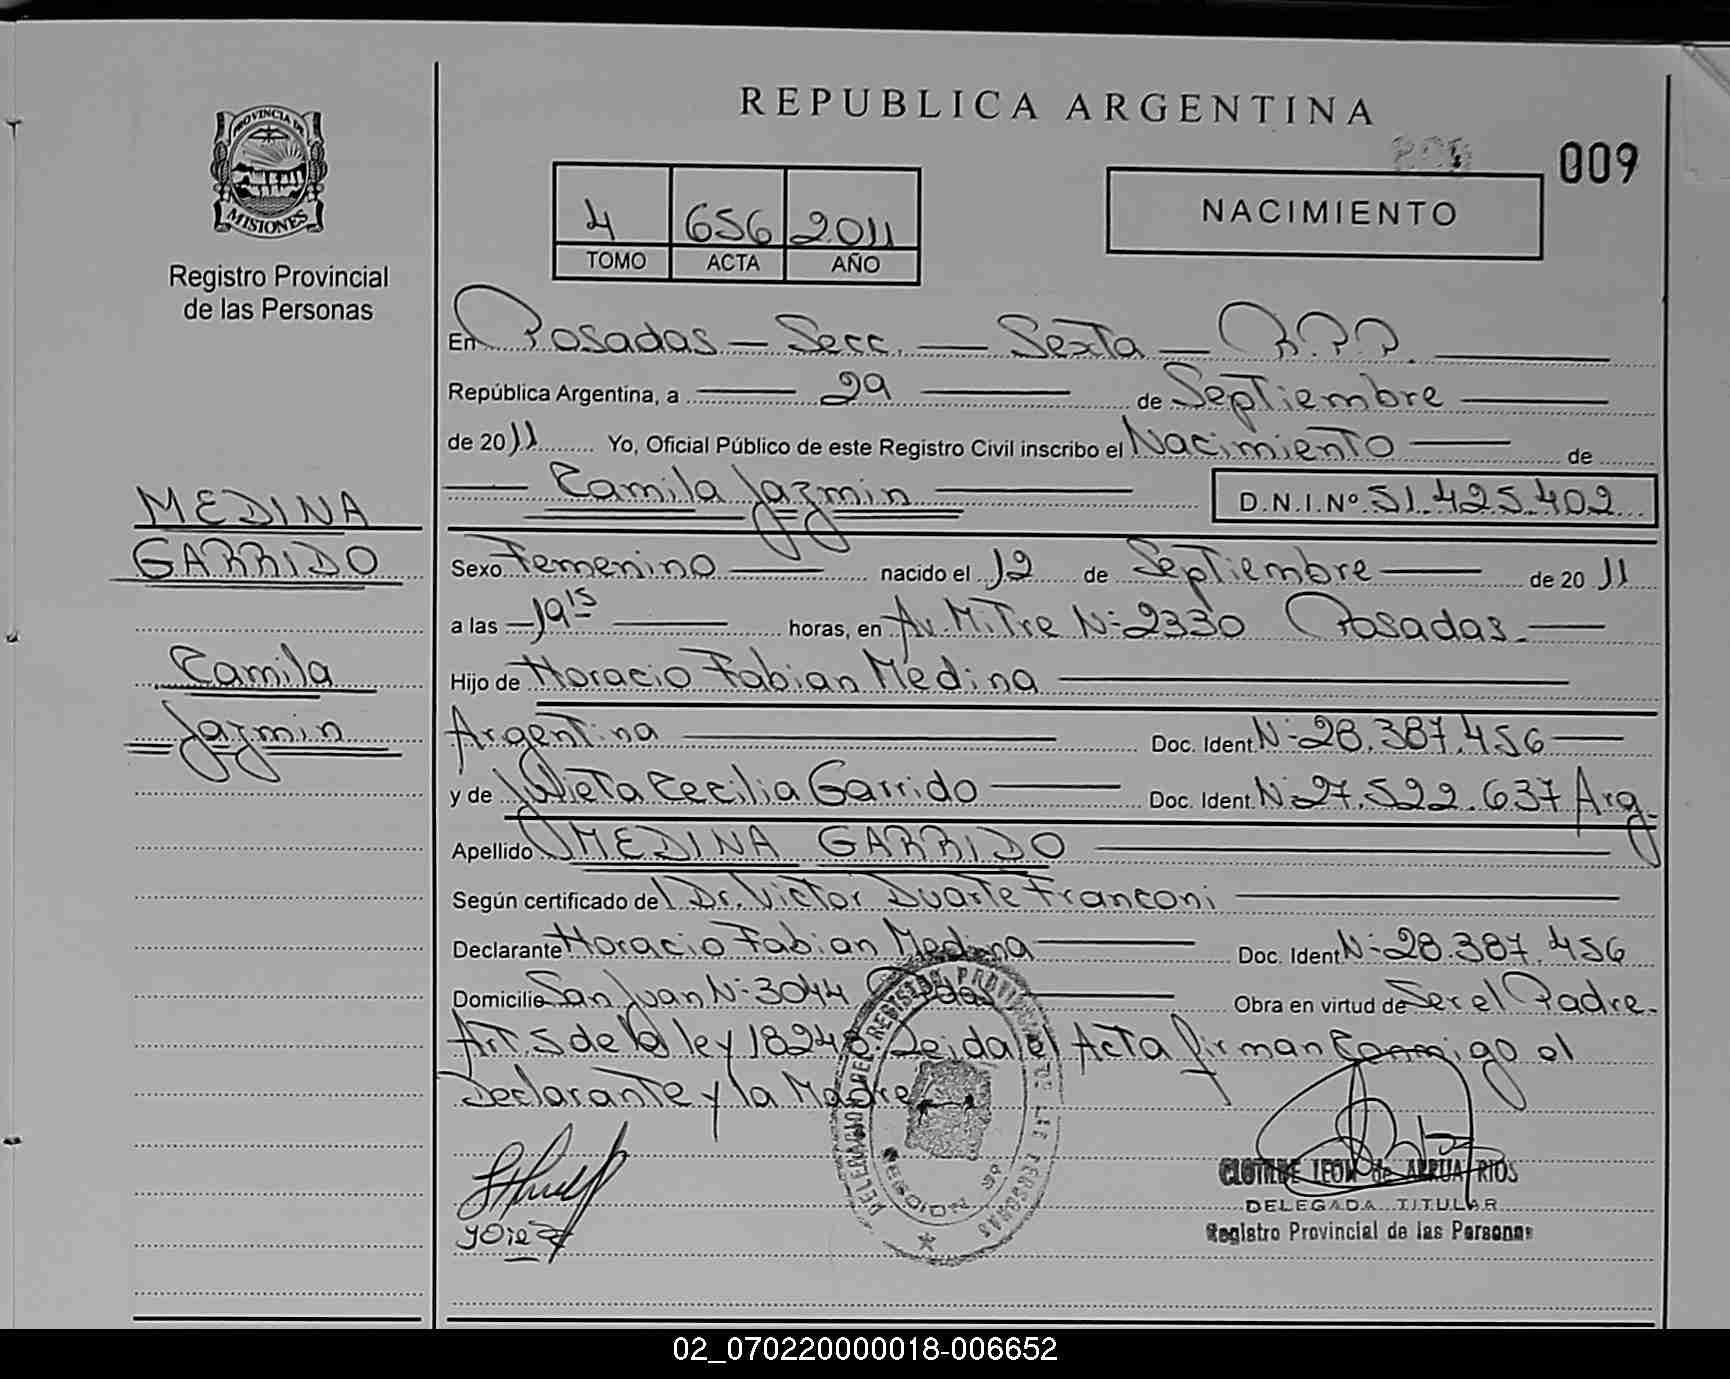 PROVINCIA DE
MISIONES
Registro Provincial
de las Personas
MEDINA
GARRIDO
Camila
Jazmin
REPUBLICA ARGENTINA
009
4 656 2011
TOMO ACTA AÑO
NACIMIENTO
En Posadas — Secc. — Sexta — R.P.P.
República Argentina, a 29 de Septiembre
de 2011 Yo, Oficial Público de este Registro Civil inscribo el Nacimiento de
Camila Jazmin D.N.I.Nº 51.425.402
Sexo Femenino nacido el 12 de Septiembre de 2011
a las 19 15 horas, en Av. Mitre Nº 2330 Posadas.
Hijo de Horacio Fabian Medina
Argentina Doc. Ident. Nº 28.387.456
y de Julieta Cecilia Garrido Doc. Ident. Nº 27.522.637 Arg.
Apellido MEDINA GARRIDO
Según certificado del Dr. Victor Duarte Franconi
Declarante Horacio Fabian Medina Doc. Ident. Nº 28.387.456
Domicilio San Juan Nº 3044 Obra en virtud de Ser el Padre.
Art. 5 de la ley 18248. Leida el Acta firman Conmigo el
Declarante y la Madre
CLOTILDE LEON de ARRUA RIOS
DELEGADA TITULAR
Registro Provincial de las Personas
02_070220000018-006652